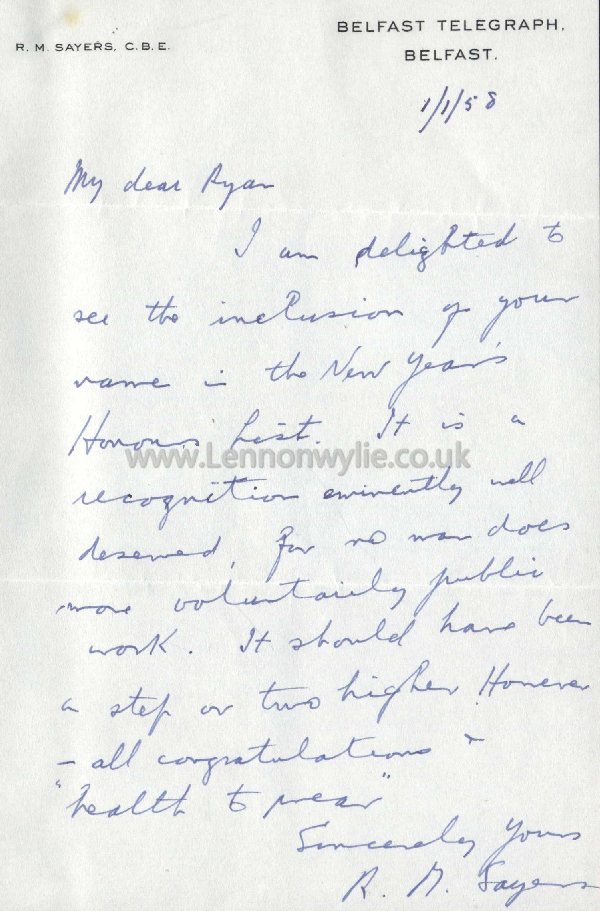 R. M. SAYERS, C.B.E.
BELFAST TELEGRAPH,
BELFAST.
1/1/58
My dear Ryan
I am delighted to
see the inclusion of your
name in the New Year's
Honours List. It is a
www.Lennonwylie.co.uk
recognition eminently well
deserved, for no man does
more voluntarily public
work. It should have been
a step or two higher. However
– all congratulations &
"health to wear"
Sincerely yours
R. M. Sayers